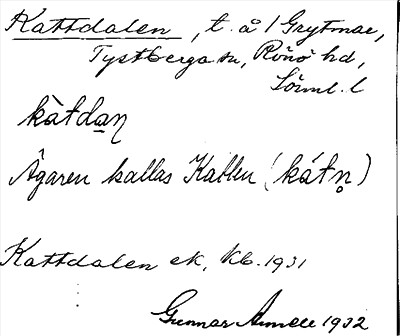 Kattdalen, t. å 1 Grytmar,
Tystberga sn, Rönö hd,
Sörml. l
kàtdaṉ
Ägaren kallas Katten (kátṇ)
Kattdalen ek. kb. 1931
Gunnar 1932